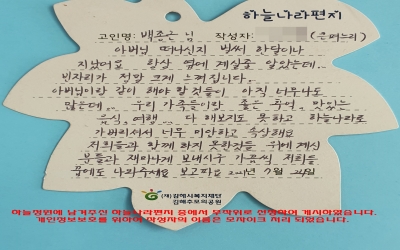 하늘나라편지
고인명: 배종근 님 작성자: (은며느리)
아버님 떠나신지 벌써 한달이나
지났어요 항상 옆에 계실줄 알았는데...
빈자리가 정말 크게 느껴집니다.
아버님이랑 같이 해야 할 것들이 아직 너무나도
많은데... 우리 가족들이랑 좋은 추억, 맛있는
음식, 여행... 다 해보지도 못하고 하늘나라로
가버리셔서 너무 미안하고 속상해요
저희들과 함께 하지 못한것들 위에 계신
분들과 재미나게 보내시구 가끔씩 저희들
꿈에도 나와주세요 보고파요 2021년 7월 24일
(재)김해시복지재단
김해추모의공원
하늘정원에 남겨주신 하늘나라편지 중에서 무작위로 선정하여 게시하였습니다.
개인정보보호를 위하여 작성자의 이름은 모자이크 처리 되었습니다.